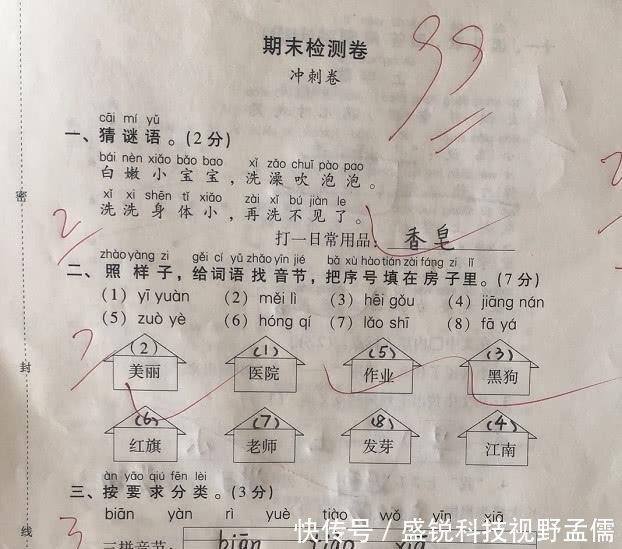 期末检测卷
99
冲刺卷
cāi mí yǔ
一、猜谜语。(2分)
bái nèn xiǎo bǎo bao xǐ zǎo chuī pào pao
白嫩小宝宝，洗澡吹泡泡。
xǐ xi shēn tǐ xiǎo zài xǐ bú jiàn le
洗洗身体小，再洗不见了。
2
打一日常用品：香皂
zhào yàng zi gěi cí yǔ zhǎo yīn jié bǎ xù hào tián zài fáng zi lǐ
二、照样子，给词语找音节，把序号填在房子里。(7分)
(1) yī yuàn (2) měi lì (3) hēi gǒu (4) jiāng nán
(5) zuò yè (6) hóng qí (7) lǎo shī (8) fā yá
7
(2) (1) (5) (3)
美丽 医院 作业 黑狗
(6) (7) (8) (4)
红旗 老师 发芽 江南
àn yāo qiú fēn lèi
三、按要求分类。(3分)
biān yàn rì yuè tiào wǒ yīn xiā
3
三拼音节：biān tiào xiā
密
封
线
快传号／盛锐科技视野孟儒